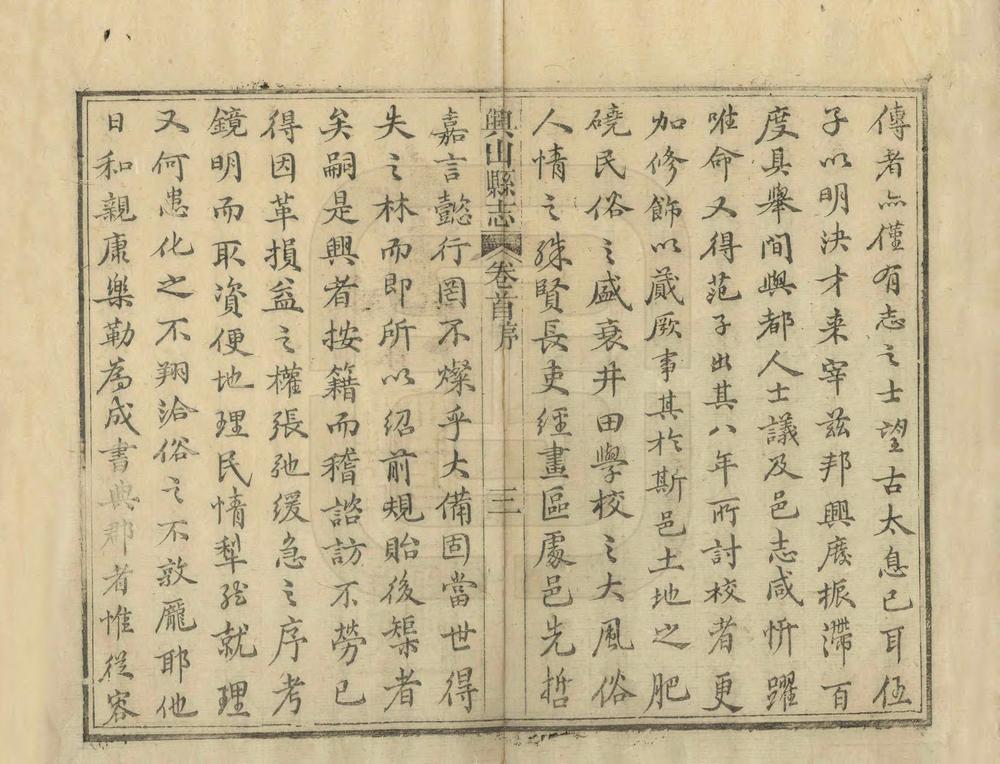 傳者亦僅有志之士望古太息已耳伍
子以明決才来宰茲邦興廢振滯百
度具舉間與都人士議及邑志咸忻躍
唯命又得范子出其八年所討校者更
加修飾以蕆厥事其於斯邑土地之肥
磽民俗之盛衰井田學校之大風俗
人情之殊賢長吏經畫區處邑先哲
興山縣志
卷首序
三
嘉言懿行罔不燦乎大備固當世得
失之林而即所以紹前規貽後榘者
矣嗣是興者按籍而稽諮訪不勞已
得因革損益之權張弛緩急之序考
鏡明而取資便地理民情犁然就理
又何患化之不翔洽俗之不敦龐耶他
日和親康樂勒為成書典郡者惟從容